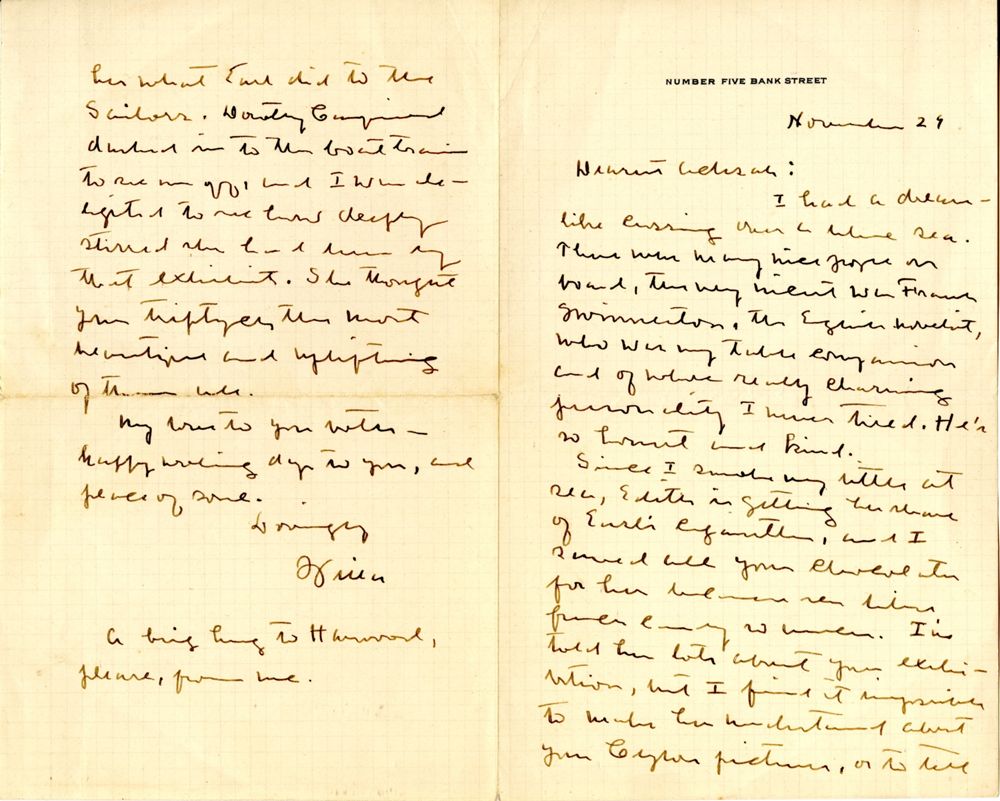 NUMBER FIVE BANK STREET
November 29
Dearest Achsah:
I had a dream-
like crossing over a blue sea.
There were many nice people on
board, the very nicest was Frank
Swinnerton, the English novelist,
who was my table companion
and of whose really charming
personality I never tired. He's
so honest and kind.
Since I smoke very little at
sea, Edith is getting her share
of Earl's cigarettes, and I
saved all your chocolates
for her because she likes
candy so much. I've
told her lots about your exhi-
bition, but I find it impossible
to make her understand about
your Ceylon pictures, or to tell
her what Earl did to the
Sailors. Dorothy
dashed in to the boat train
to see me off, and I was de-
lighted to see how deeply
stirred she had been by
that exhibit. She thought
your triptych the most
beautiful and uplifting
of them all.
My love to you both -
happy working days to you, and
peace of soul.
Lovingly
A big hug to Harwood,
please, from me.